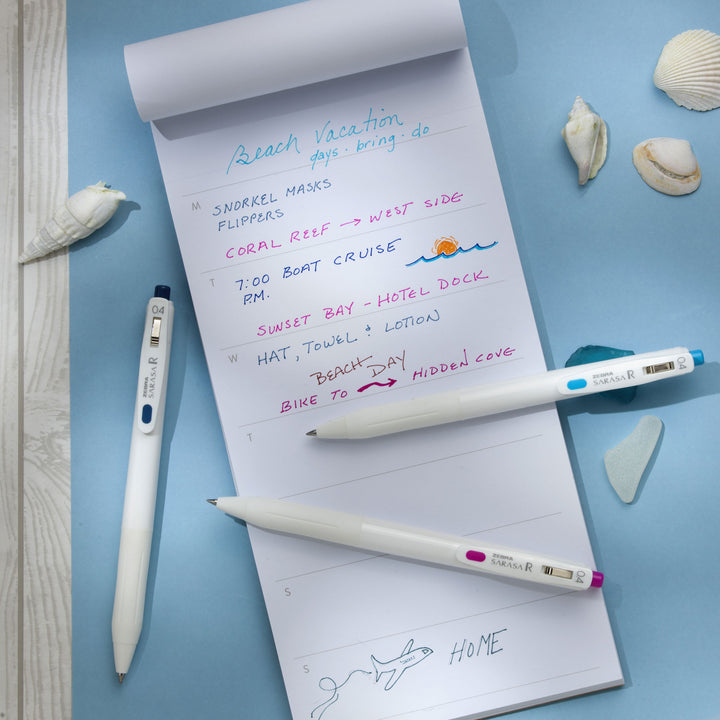 Beach Vacation
days · bring · do
M
SNORKEL MASKS
FLIPPERS
CORAL REEF → WEST SIDE
T
7:00 BOAT CRUISE
P.M.
SUNSET BAY - HOTEL DOCK
W
HAT, TOWEL & LOTION
BEACH DAY
BIKE TO → HIDDEN COVE
T
S
S
HOME
04
ZEBRA
SARASA R
ZEBRA
SARASA R
04
ZEBRA
SARASA R
04